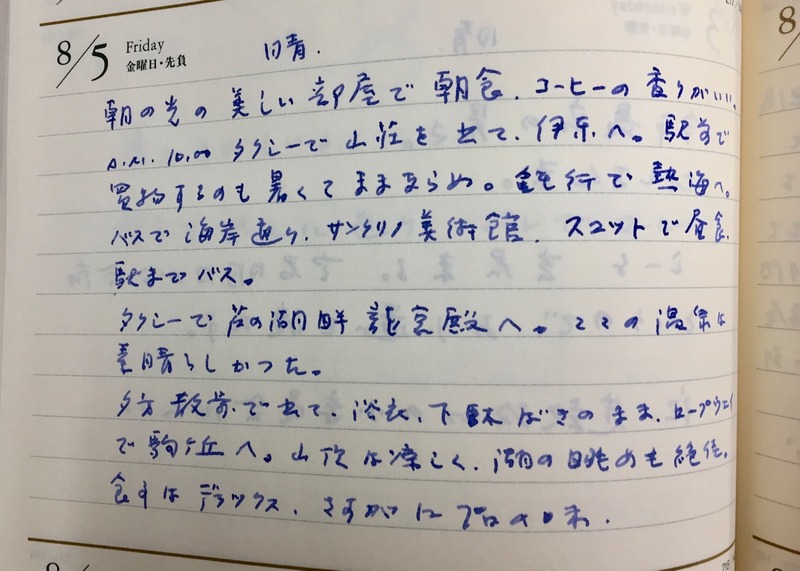 8/5 Friday 晴.
金曜日・先負
朝の光の美しい部屋で朝食. コーヒーの香りがいい.
A.M. 10.00 タクシーで山荘を出て、伊東へ。駅前で
買物するのも暑くてままならぬ。鈍行で熱海へ。
バスで海岸通り、サンクリノ美術館. スコットで昼食.
駅までバス。
タクシーで芦の湖畔龍宮殿へ。ここの温泉は
素晴らしかった。
夕方散歩で出て、浴衣、下駄ばきのまま、ロープウェイ
で駒ヶ丘へ。山頂は涼しく、湖の眺めも絶佳。
食事はデラックス、さすがにプロの味.